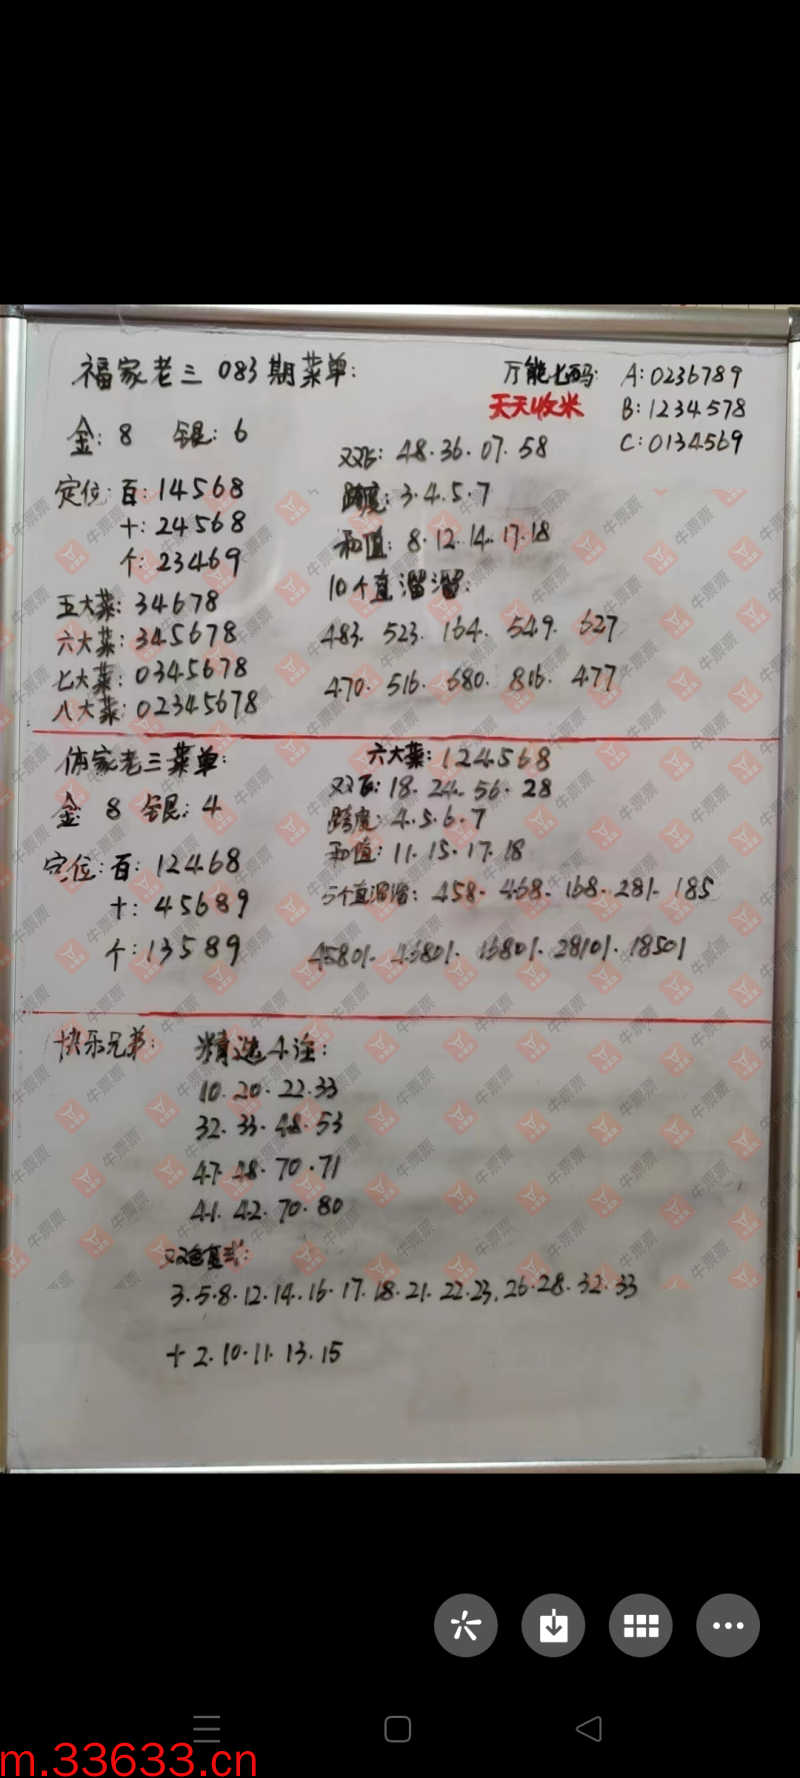 福家老三 083期菜单:
万能七码: A:0236789
天天收米 B:1234578
C:0134569
金:8 银:6
双飞:48·36·07·58
定位:百:14568
跨度:3·4·5·7
十:24568
和值:8·12·14·17·18
个:23469
10个直溜溜:
五大菜:34678
六大菜:345678
483· 523· 164· 549· 627
七大菜:0345678
470· 516· 680· 806· 477
八大菜:02345678
体家老三菜单:
六大菜:124568
双飞:18·24·56·28
金:8 银:4
跨度:4·5·6·7
和值:11·15·17·18
定位:百:12468
5个直溜溜:458·468·168·281·185
十:45689
个:13589
45801·46801·16801·28101·18501
快乐兄弟: 精选4注:
10·20·22·33
32·33·48·53
47·48·70·71
41·42·70·80
双色复式:
3·5·8·12·14·16·17·18·21·22·23·26·28·32·33
+2·10·11·13·15
牛票票
m.33633.cn